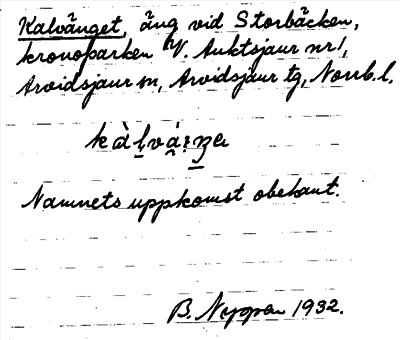 Kalvänget, äng vid Storbäcken,
kronoparken V. Auktsjaur nr 1,
Arvidsjaur sn, Arvidsjaur tg, Norrb. l.
Namnets uppkomst obekant.
B. 1932.